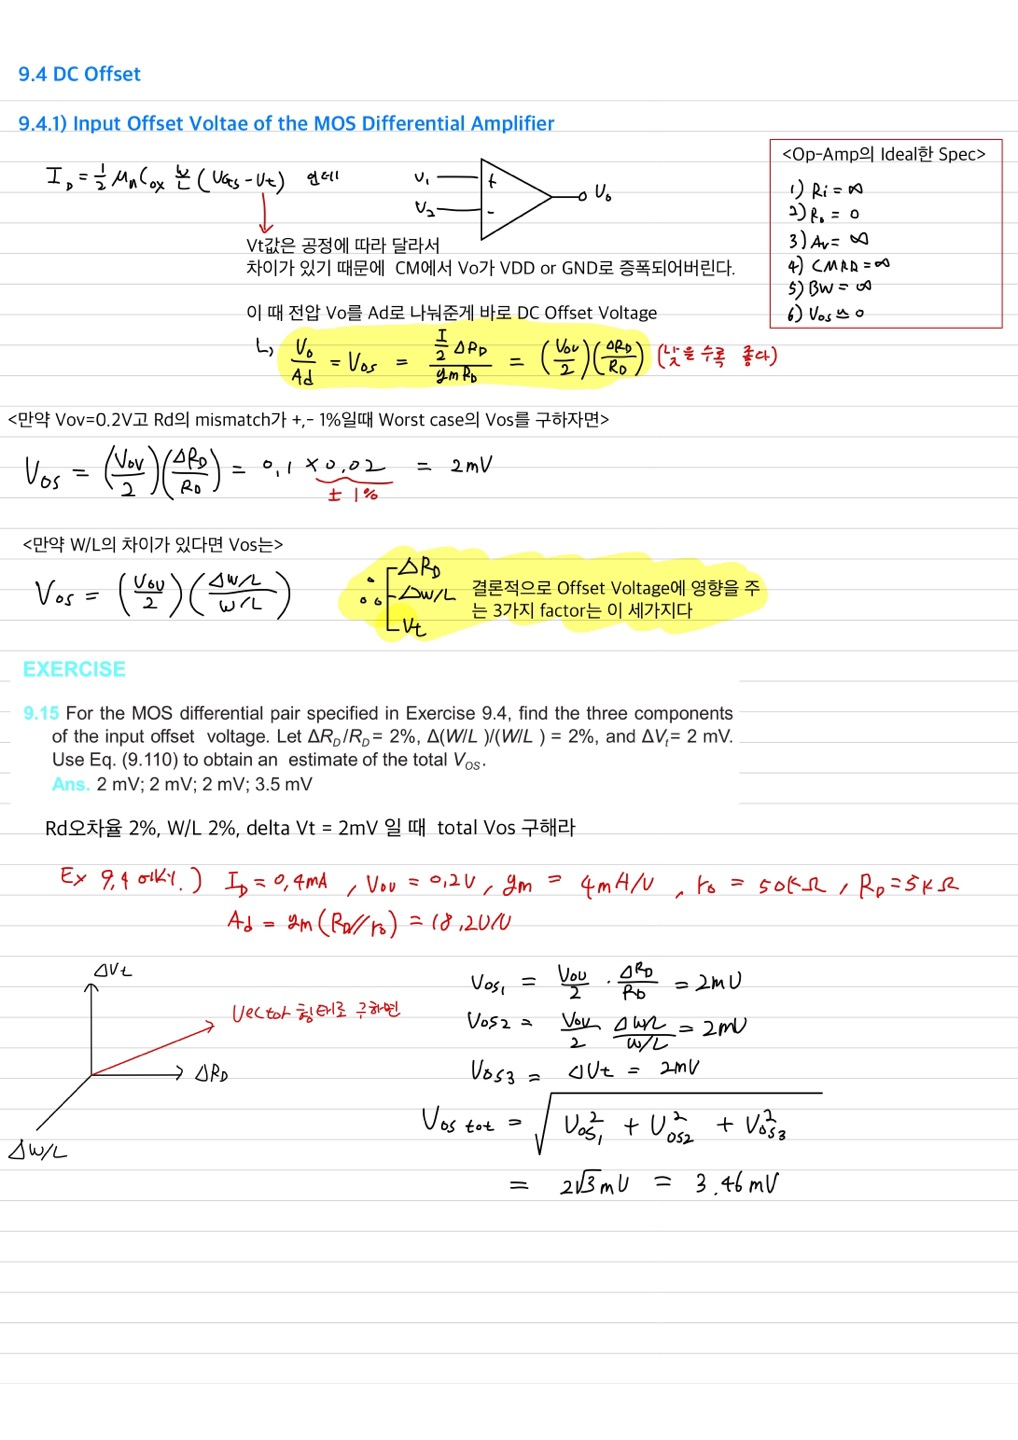 9.4 DC Offset
9.4.1) Input Offset Voltae of the MOS Differential Amplifier
<Op-Amp의 Ideal한 Spec>
1) Ri = ∞
2) Ro = 0
3) Av = ∞
4) CMRR = ∞
5) BW = ∞
6) Vos ≃ 0
I_D = 1/2 μn Cox W/L (VGS - Vt) 인데
V1 + V2 - Vo
Vt값은 공정에 따라 달라서
차이가 있기 때문에 CM에서 Vo가 VDD or GND로 증폭되어버린다.
이 때 전압 Vo를 Ad로 나눠준게 바로 DC Offset Voltage
↳ Vo/Ad = Vos = (I/2 ΔRD)/(gm RD) = (Vov/2)(ΔRD/RD) (낮을수록 좋다)
<만약 Vov=0.2V고 Rd의 mismatch가 +,- 1%일때 Worst case의 Vos를 구하자면>
Vos = (Vov/2)(ΔRD/RD) = 0.1 × 0.02 = 2mV
± 1%
<만약 W/L의 차이가 있다면 Vos는>
Vos = (Vov/2)(ΔW/L / W/L)
∴ ΔRD
ΔW/L
Vt
결론적으로 Offset Voltage에 영향을 주
는 3가지 factor는 이 세가지다
EXERCISE
9.15 For the MOS differential pair specified in Exercise 9.4, find the three components
of the input offset voltage. Let ΔRD/RD = 2%, Δ(W/L)/(W/L) = 2%, and ΔVt = 2 mV.
Use Eq. (9.110) to obtain an estimate of the total VOS.
Ans. 2 mV; 2 mV; 2 mV; 3.5 mV
Rd오차율 2%, W/L 2%, delta Vt = 2mV 일 때 total Vos 구해라
Ex 9.4 에서.) I_D = 0.4mA , Vov = 0.2V, gm = 4mA/V , ro = 50kΩ , RD = 5kΩ
Ad = gm(RD//ro) = 18.2V/V
ΔVt
Vector 형태로 구하면
ΔRD
ΔW/L
Vos1 = Vov/2 · ΔRD/RD = 2mV
Vos2 = Vov/2 ΔW/L / W/L = 2mV
Vos3 = ΔVt = 2mV
Vos tot = √(Vos1² + Vos2² + Vos3²)
= 2√3 mV = 3.46mV